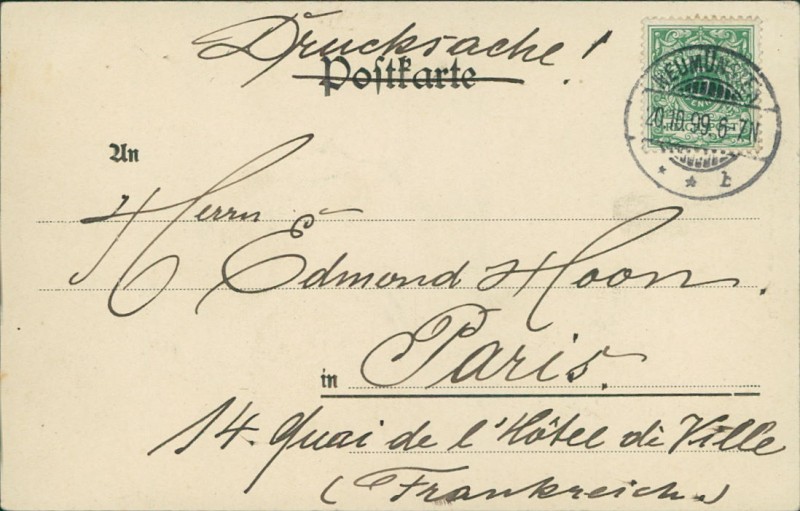 Drucksache!
Postkarte
NEUMÜNSTER
20.10.99.6-7N
* * b
An
Herrn
Edmond Hoon.
in Paris.
14. Quai de l'Hôtel de Ville
(Frankreich.)